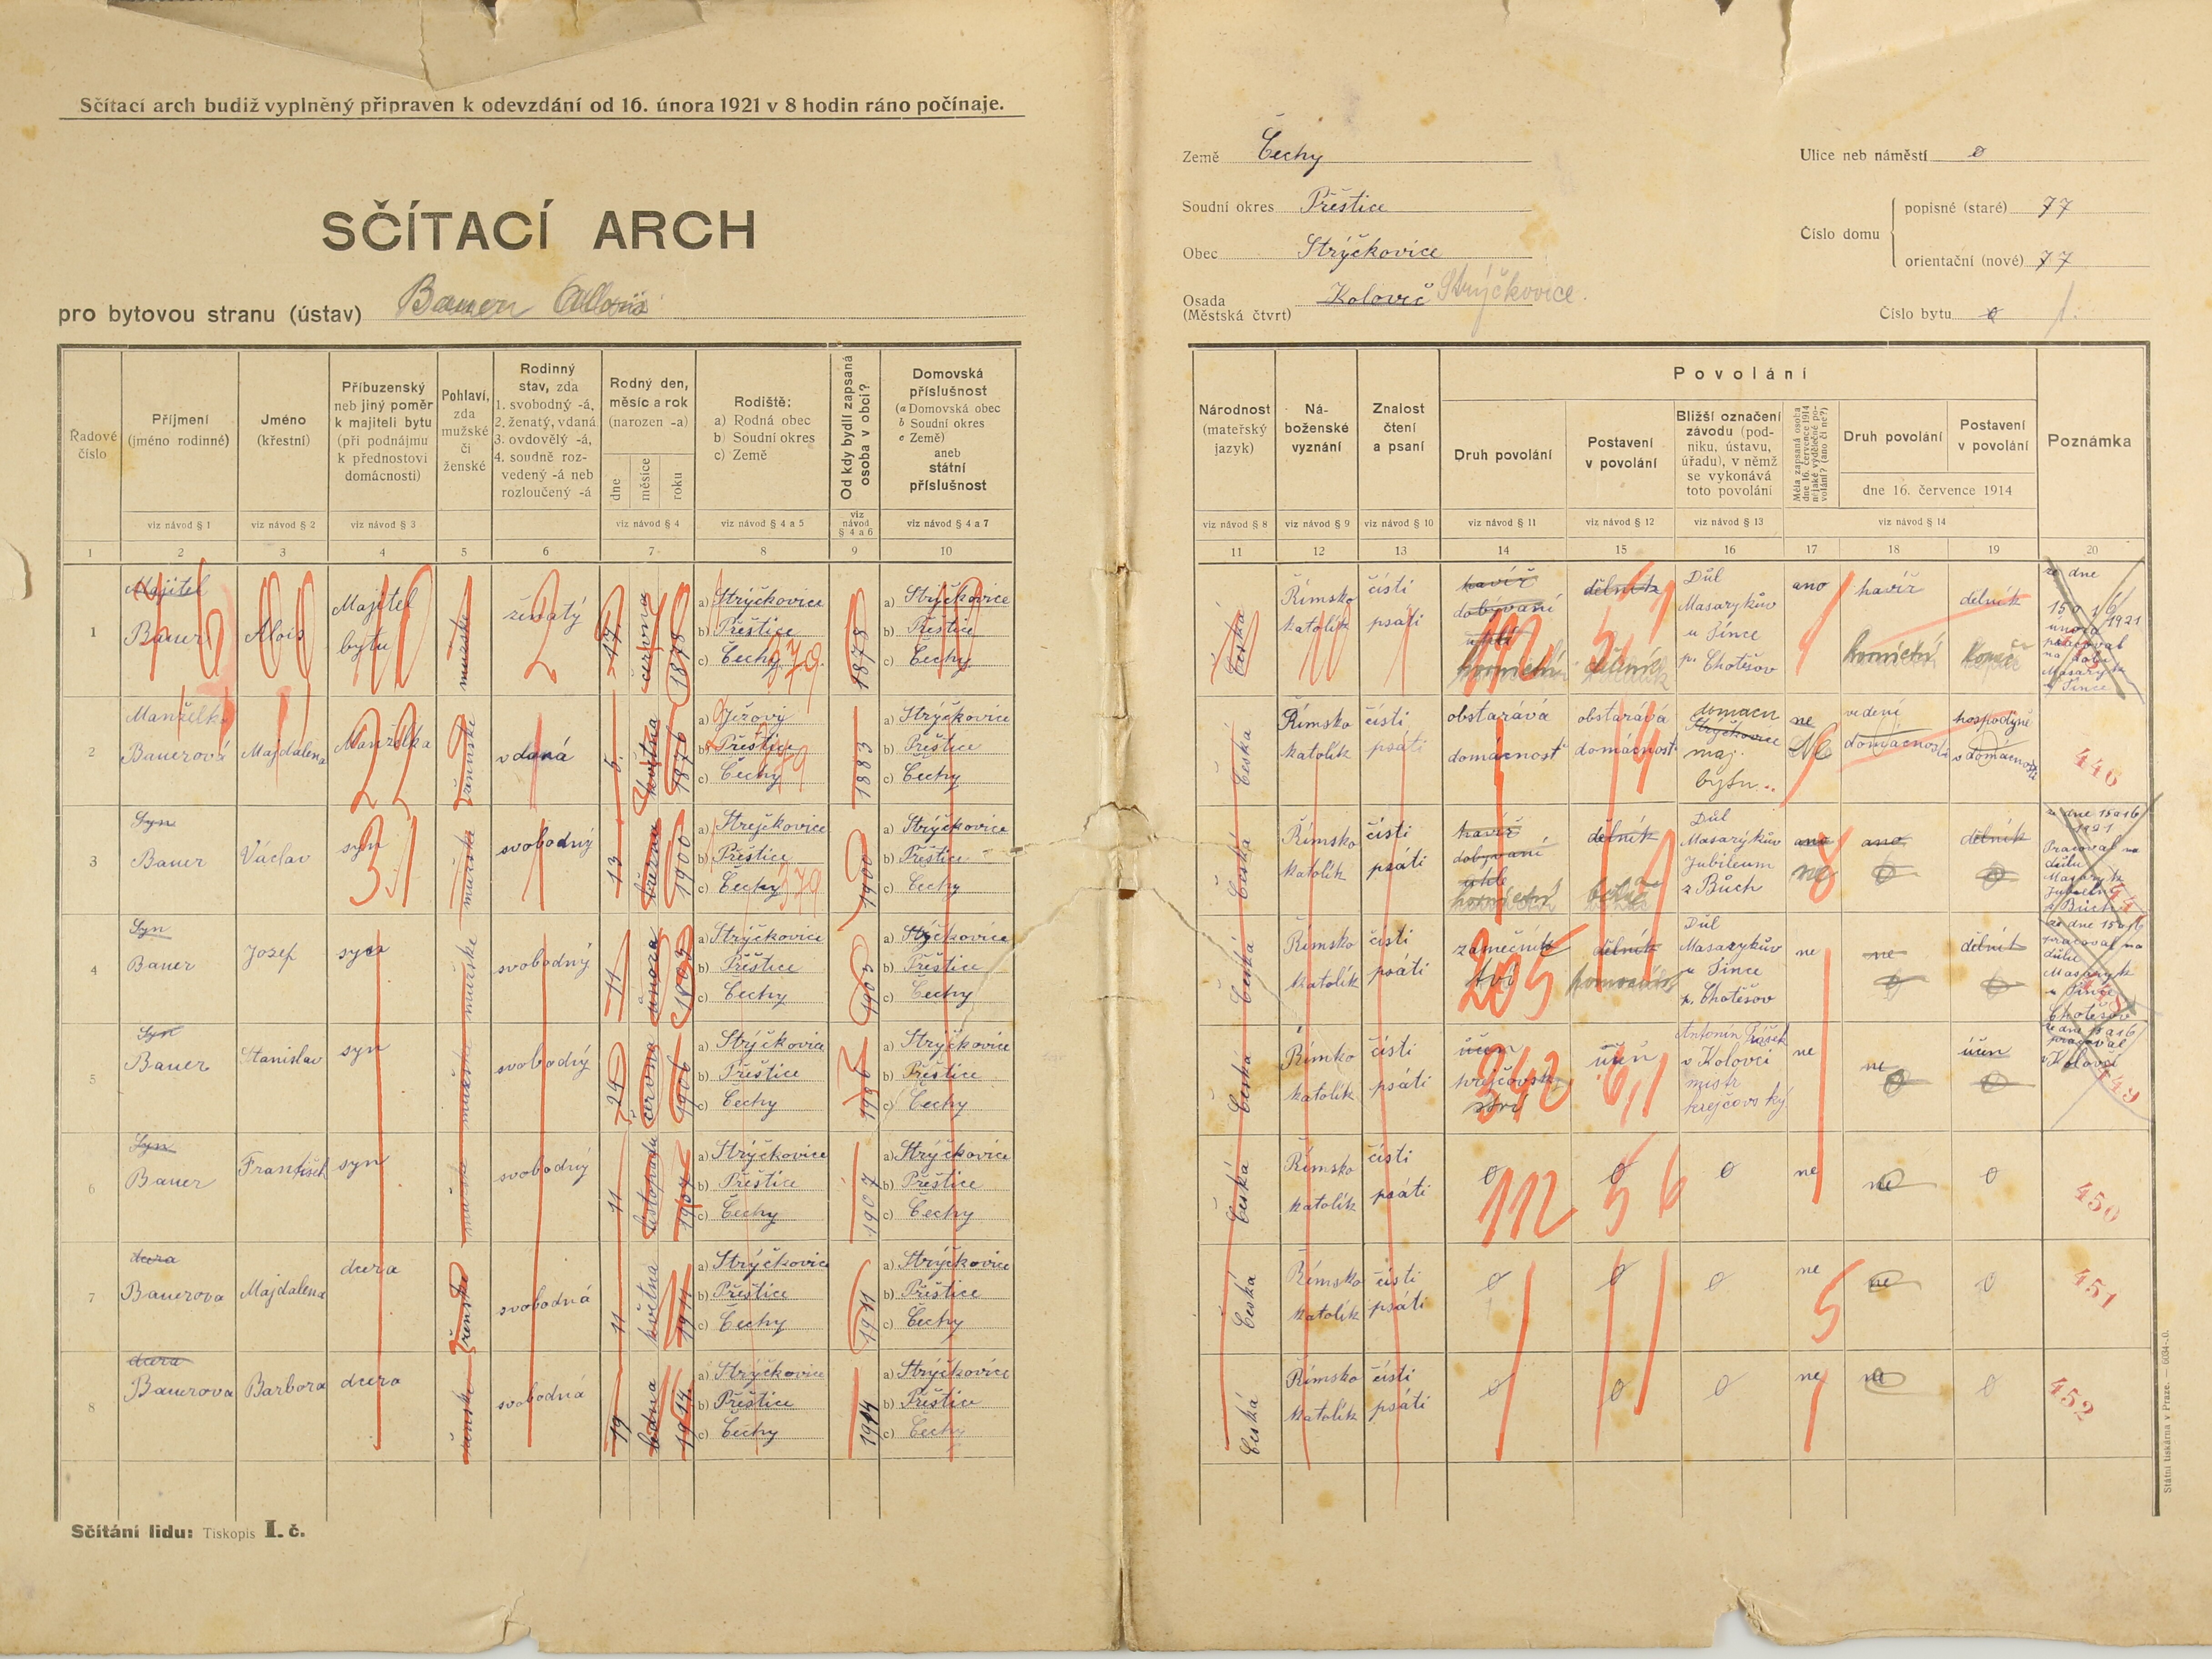 Sčítací arch budiž vyplněný připraven k odevzdání od 16. února 1921 v 8 hodin ráno počínaje.
SČÍTACÍ ARCH
pro bytovou stranu (ústav) Bauer Alois
Země Čechy
Soudní okres Přeštice
Obec Strýčkovice
Osada (Městská čtvrt) Koloveč Strýčkovice.
Ulice neb náměstí 0
Číslo domu
popisné (staré) 77
orientační (nové) 77
Číslo bytu 0 1.
Řadové číslo
Příjmení (jméno rodinné)
Jméno (křestní)
Příbuzenský neb jiný poměr k majiteli bytu (při podnájmu k přednostovi domácnosti)
Pohlaví, zda mužské či ženské
Rodinný stav, zda 1. svobodný -á, 2. ženatý, vdaná 3. ovdovělý -á, 4. soudně rozvedený -á neb rozloučený -á
Rodný den, měsíc a rok (narozen -a)
dne měsíce roku
Rodiště:
a) Rodná obec
b) Soudní okres
c) Země
Od kdy bydlí zapsaná osoba v obci?
Domovská příslušnost
(a Domovská obec
b Soudní okres
c Země)
aneb
státní příslušnost
viz návod § 1 viz návod § 2 viz návod § 3 viz návod § 4 viz návod § 4 a 5 viz návod § 4 a 6 viz návod § 4 a 7
1 2 3 4 5 6 7 8 9 10
Národnost (mateřský jazyk)
Náboženské vyznání
Znalost čtení a psaní
Povolání
Druh povolání
Postavení v povolání
Bližší označení závodu (podniku, ústavu, úřadu), v němž se vykonává toto povolání
Měla zapsaná osoba dne 16. července 1914 nějaké výdělečné povolání? (ano či ne?)
Druh povolání
Postavení v povolání
dne 16. července 1914
Poznámka
viz návod § 8 viz návod § 9 viz návod § 10 viz návod § 11 viz návod § 12 viz návod § 13 viz návod § 14
11 12 13 14 15 16 17 18 19 20
1 Majitel Bauer Alois Majitel bytu mužské ženatý 17 června 1878
a) Strýčkovice
b) Přeštice
c) Čechy 379.
1878
a) Strýčkovice
b) Přeštice
c) Čechy
česká Římsko katolík čísti psáti havíř dobývaní uhlí hornictví dělník dělník
Důl Masarykův u Tince p. Chotěšov
ano havíř hornictví dělník
ze dne 15 a 16 února 1921 pracoval na dolu Masaryk u Tince
2 Manželka Bauerová Majdalena Manželka ženské vdaná 5. května 1876
a) Ježovy
b) Přeštice
c) Čechy
1883
a) Strýčkovice
b) Přeštice
c) Čechy
česká Římsko katolík čísti psáti obstarává domácnost obstarává domácnost
Strýčkovice maj. bytu..
ne Ne vedení domácnosti hospodyně v domácnosti
446
3 Syn Bauer Václav syn mužské svobodný 13 března 1900
a) Strejčkovice
b) Přeštice
c) Čechy 379
1900
a) Strýčkovice
b) Přeštice
c) Čechy
česká Římsko katolík čísti psáti havíř dobývaní uhlí hornictví dělník
Důl Masarykův Jubileum z Bůch
ano ne ano 0 dělník 0
ze dne 15 a 16 1921 Pracoval na důlu Masaryk
4 Syn Bauer Josef syn mužské svobodný 11 února 1903
a) Strýčkovice
b) Přeštice
c) Čechy
1903
a) Strýčkovice
b) Přeštice
c) Čechy
česká Římsko katolík čísti psáti zámečnictví 205 dělník
Důl Masarykův u Tince p. Chotěšov
ne ne 0 dělník 0
ze dne 15 a 16 pracoval na důlu Masaryk u Tince Chotěšov
5 Syn Bauer Stanislav syn mužské svobodný 29 června 1906
a) Strýčkovice
b) Přeštice
c) Čechy
1906
a) Strýčkovice
b) Přeštice
c) Čechy
česká Římko katolík čísti psáti učen krejčovství 342 učeň
Antonín v Kolovči mistr krejčovský
ne ne 0 účen 0
ze dne 15 a 16 pracoval v Kolovči
6 Syn Bauer František syn mužské svobodný 11 listopadu 1907
a) Strýčkovice
b) Přeštice
c) Čechy
1907
a) Strýčkovice
b) Přeštice
c) Čechy
česká Římsko katolík čísti psáti 0 112 0 56 0 ne ne 0
450
7 dcera Bauerova Majdalena dcera ženské svobodná 11 května 1911
a) Strýčkovice
b) Přeštice
c) Čechy
1911
a) Strýčkovice
b) Přeštice
c) Čechy
česká Římsko katolík čísti psáti 0 0 0 ne ne 0
451
8 dcera Bauerova Barbora dcera ženské svobodná 19 ledna 1914
a) Strýčkovice
b) Přeštice
c) Čechy
1914
a) Strýčkovice
b) Přeštice
c) Čechy
česká Římsko katolík čísti psáti 0 0 0 ne ne 0
452
Sčítání lidu: Tiskopis I. č.
Státní tiskárna v Praze. — 6034-20.